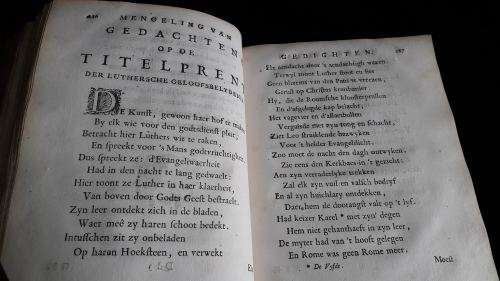 MENGELING VAN
GEDACHTEN
OP DE
TITELPRENT
DER LUTHERSCHE GELOOFSBELYDENIS
DE Kunst, gewoon haer hof te maken
By elk wie voor den godsdienst pleit,
Betracht hier Luthers wit te raken,
En spreekt voor 's Mans godvruchtigheit.
Dus spreekt ze: d'Evangelswaerheit
Had in den nacht te lang gedwaelt:
Hier toont ze Luther in haer klaerheit,
Van boven door Godts Geest bestraelt.
Zyn leer ontdekt zich in de bladen,
Waer meê zy haren schoot bedekt.
Intusschen zit zy onbeladen
Op haren Hoeksteen, en verwekt
GEDICHTEN. 187
Elx aendacht door 't aendachtigh waren.
Terwyl toont Luther stout en fier
Geen blixems van den Paus te vreezen,
Gerust op Christus kruisbanier
Hy, die de Roomsche kloosterpressen
En d'afgelegde kap belacht,
Het vagevier en d'aflaetbullen
Vergruisde met zyn tong en schacht,
Ziet Leo struikelende bezwyken
Voor 't helder Evangelilicht,
Zoo moet de nacht den dagh ontwyken.
Zie eens den Kerkbaes in 't gezicht:
Aen zyn veraderlyke trekken
Zal elk zyn vuil en valsch bedryf
En al zyn huichlary ontdekken,
Daer hem de doodangst valt op 't lyf.
Had keizer Karel * met zyn degen
Hem niet gehanthaeft in zyn leer,
De myter had van 't hooft gelegen
En Rome was geen Rome meer.
* De Vyfde.
Moest